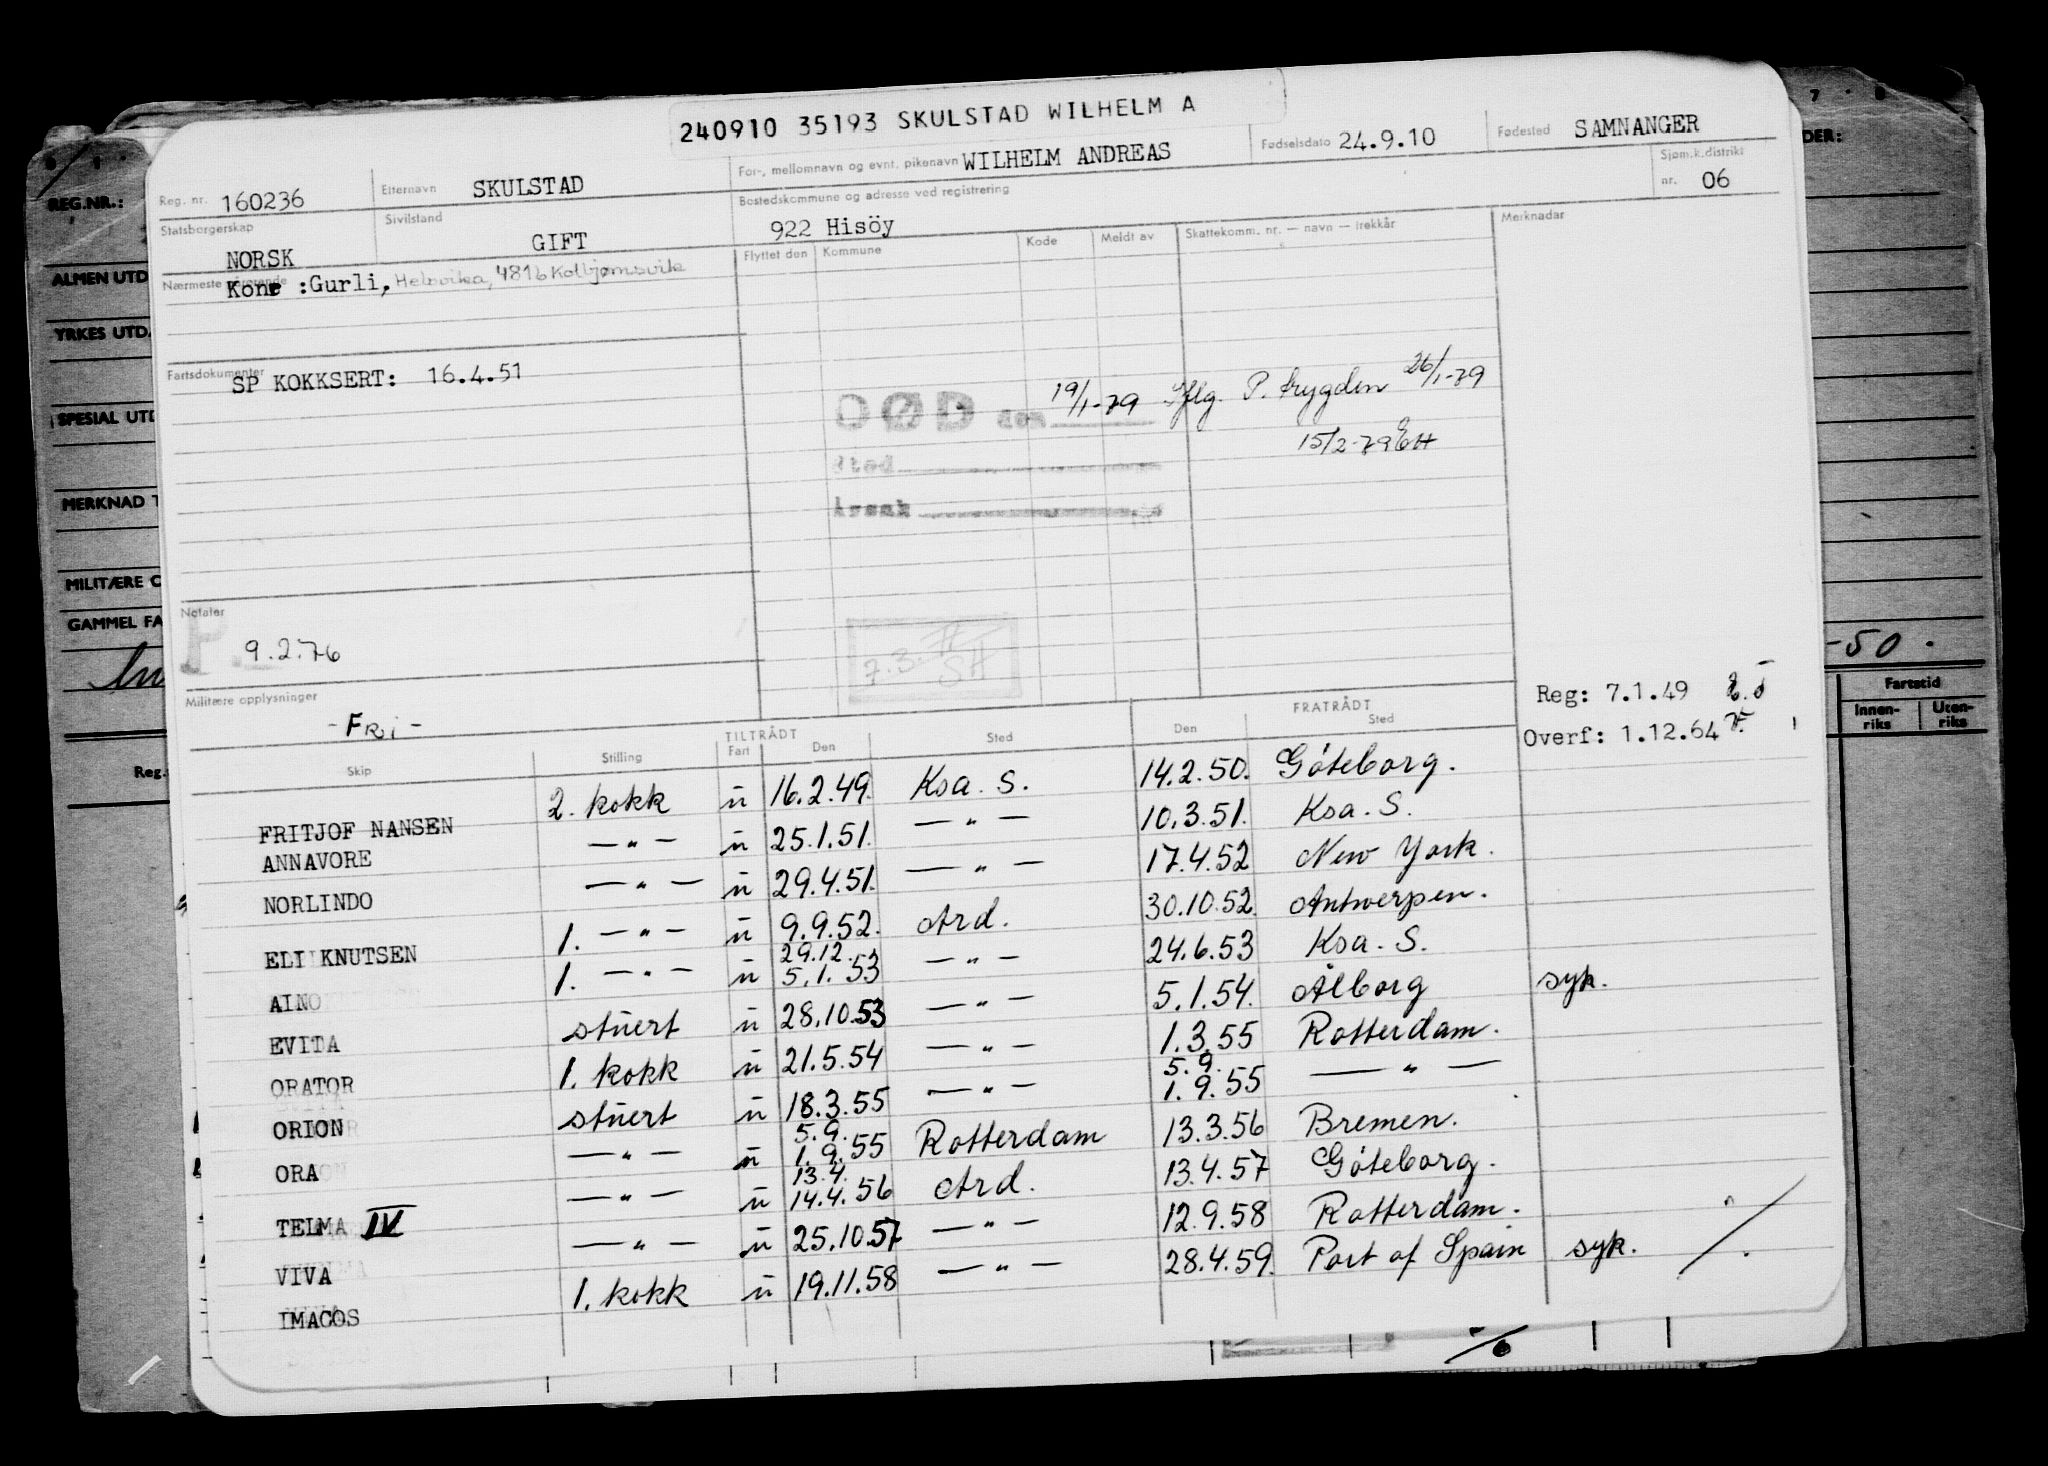 240910 35193 SKULSTAD WILHELM A
Reg. nr. 160236 Etternavn SKULSTAD For-, mellomnavn og evnt. pikenavn WILHELM ANDREAS Fødselsdato 24.9.10 Fødested SAMNANGER
Statsborgerskap NORSK Sivilstand GIFT Bostedskommune og adresse ved registrering 922 Hisöy Sjøm.k.distrikt nr. 06
Nærmeste pårørende Kone :Gurli, Helsvika, 4816 Kolbjørnsvik
Flyttet den Kommune Kode Meldt av Skattekomm. nr. — navn — trekkår Merknadar
Fartsdokumenter SP KOKKSERT: 16.4.51
DØD den 19/1-79 Iflg. P. trygden 26/1-79
15/2-79 EH
Sted
Årsak
Notater
P. 9.2.76
7.3.77
SH
Militære opplysninger
-FRi-
Reg: 7.1.49
Overf: 1.12.64
TILTRÅDT FRATRÅDT
Skip Stilling Fart Den Sted Den Sted
FRITJOF NANSEN 2. kokk u 16.2.49. Ksa. S. 14.2.50. Göteborg.
ANNAVORE —"— u 25.1.51. —"— 10.3.51. Ksa. S.
NORLINDO —"— u 29.4.51. —"— 17.4.52 New York.
ELI KNUTSEN 1. —"— u 9.9.52. Ard. 30.10.52. Antwerpen.
AINO 1. —"— u 29.12. 5.1.53 —"— 24.6.53 Ksa. S.
EVITA stuert u 28.10.53 —"— 5.1.54. Ålborg syk.
ORATOR 1. kokk u 21.5.54 —"— 1.3.55 Rotterdam.
ORION stuert u 18.3.55 —"— 5.9. 1.9.55 —"—
ORA —"— u 5.9. 1.9.55 Rotterdam 13.3.56 Bremen.
TELMA IV —"— u 13.4. 14.4.56 Ard. 13.4.57 Göteborg.
VIVA —"— u 25.10.57 —"— 12.9.58 Rotterdam.
IMACOS 1. kokk u 19.11.58 —"— 28.4.59. Port of Spain syk.
REG.NR.:
ALMEN UTD
YRKES UTD.
SPESIAL UTD
MERKNAD T
MILITÆRE O
GAMMEL FA
Reg.
7 · 8
DER:
-50.
Fartstid
Innen-riks Uten-riks